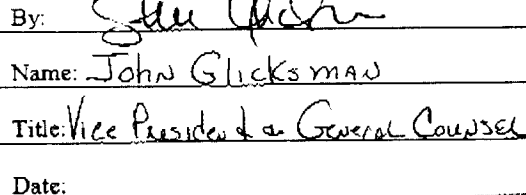 By:
Name: John Glicksman
Title: Vice President & General Counsel
Date: